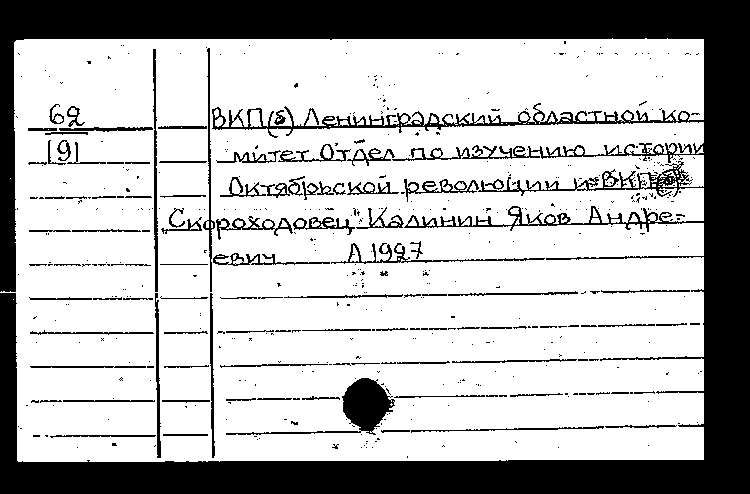 62 ВКП(б) Ленинградский областной ко-
191 митет Отдел по изучению истории
Октябрьской революции и ВКП(б)
"Скороходовец" Калинин Яков Андре=
евич Л 1927